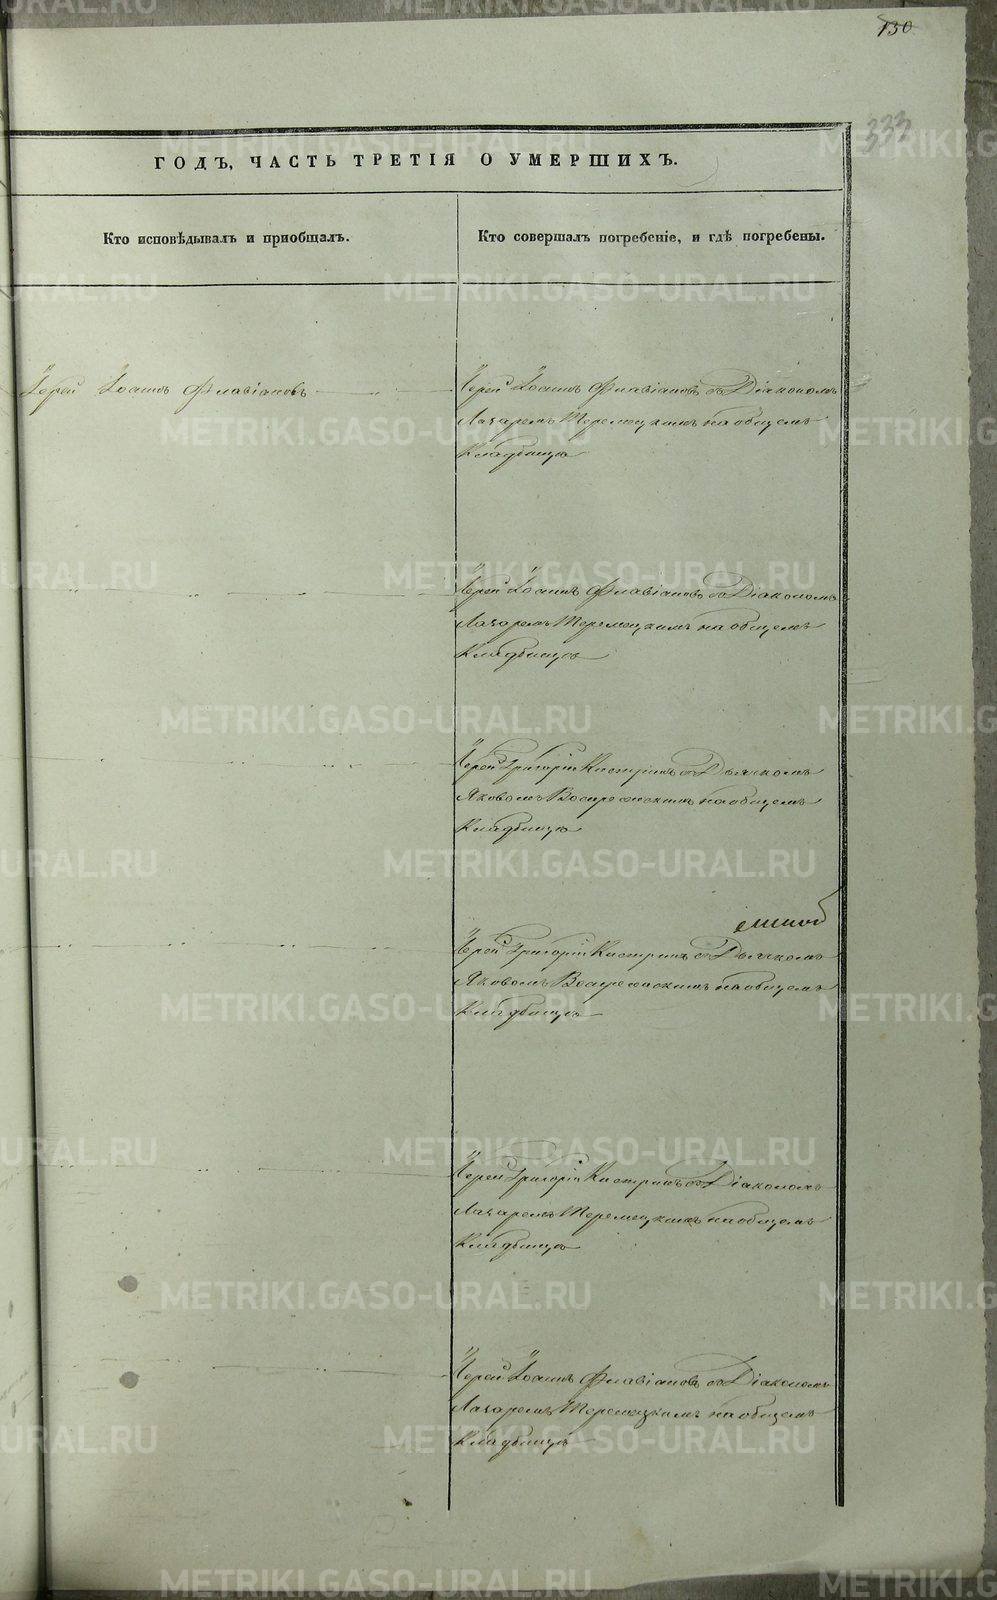 130
333
ГОДЪ, ЧАСТЬ ТРЕТІЯ О УМЕРШИХЪ.
Кто исповѣдывалъ и пріобщалъ.
Кто совершалъ погребеніе, и гдѣ погребены.
Іерей Іоаннъ Флавіановъ
Іерей Іоаннъ Флавіановъ съ Діакономъ
Лазаремъ Теремецкимъ на общемъ
Кладбищѣ
Іерей Іоаннъ Флавіановъ съ Діакономъ
Лазаремъ Теремецкимъ на общемъ
Кладбищѣ
Іерей Григорій съ Дьячкомъ
Яковомъ на общемъ
Кладбищѣ
Іерей Григорій съ Дьячкомъ
Яковомъ на общемъ
Кладбищѣ
Іерей Григорій съ Діакономъ
Лазаремъ Теремецкимъ на общемъ
Кладбищѣ
Іерей Іоаннъ Флавіановъ съ Діакономъ
Лазаремъ Теремецкимъ на общемъ
Кладбищѣ
METRIKI.GASO-URAL.RU